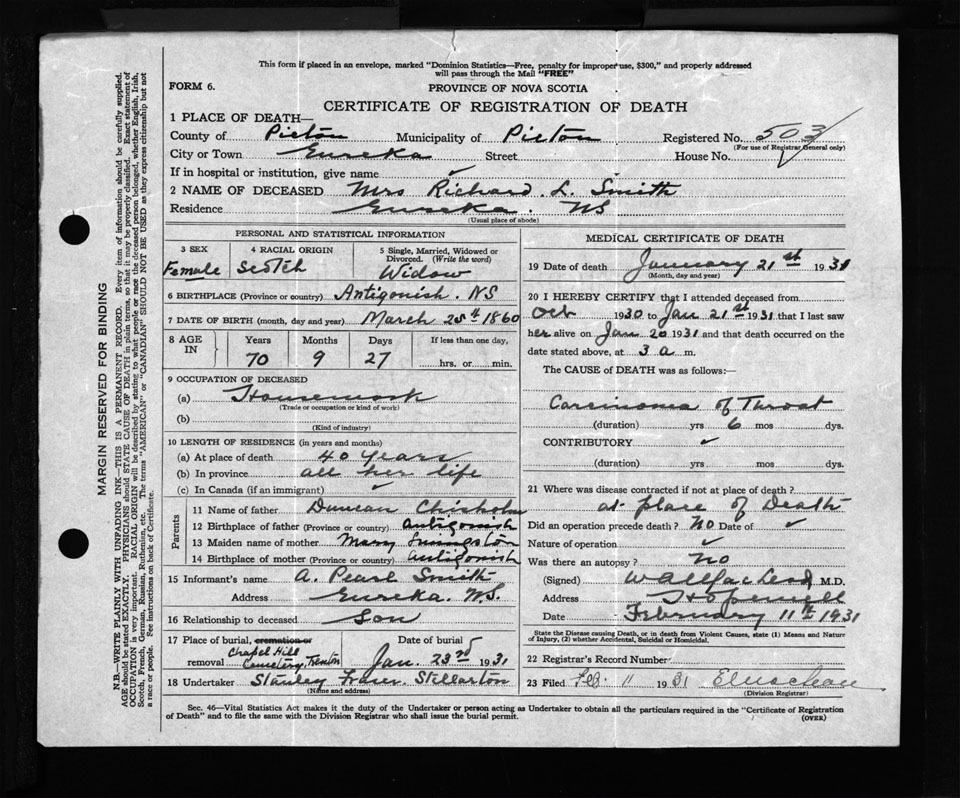 This form if placed in an envelope, marked "Dominion Statistics—Free, penalty for improper use, $300," and properly addressed
will pass through the Mail "FREE"
FORM 6.
PROVINCE OF NOVA SCOTIA
CERTIFICATE OF REGISTRATION OF DEATH
1 PLACE OF DEATH—
County of Pictou Municipality of Pictou Registered No. 503
(For use of Registrar General only)
City or Town Eureka Street House No.
If in hospital or institution, give name ✓
2 NAME OF DECEASED Mrs Richard L. Smith
Residence Eureka. NS
(Usual place of abode)
PERSONAL AND STATISTICAL INFORMATION
3 SEX 4 RACIAL ORIGIN 5 Single, Married, Widowed or
Divorced. (Write the word)
Female Scotch Widow
6 BIRTHPLACE (Province or country) Antigonish. NS
7 DATE OF BIRTH (month, day and year) March 25th 1860
8 AGE IN Years Months Days If less than one day,
70 9 27 hrs. or min.
9 OCCUPATION OF DECEASED
(a) Housework
(Trade or occupation or kind of work)
(b)
(Kind of industry)
10 LENGTH OF RESIDENCE (in years and months)
(a) At place of death 40 years
(b) In province all her life
(c) In Canada (if an immigrant) ✓
Parents
11 Name of father Duncan Chisholm
12 Birthplace of father (Province or country) Antigonish
13 Maiden name of mother Mary
14 Birthplace of mother (Province or country) Antigonish
15 Informant's name A. Pearl Smith
Address Eureka. N.S.
16 Relationship to deceased Son
17 Place of burial, cremation or Date of burial
removal Chapel Hill
Cemetery, Trenton Jan. 23rd 1931
18 Undertaker Stanley Fraser Stellarton
(Name and address)
MEDICAL CERTIFICATE OF DEATH
19 Date of death January 21st 1931
(Month, day and year)
20 I HEREBY CERTIFY that I attended deceased from
Oct 1930 to Jan 21st 1931 that I last saw
her alive on Jan 20 1931 and that death occurred on the
date stated above, at 3 a m.
The CAUSE of DEATH was as follows:—
Carcinoma of Throat
(duration) yrs 6 mos dys.
CONTRIBUTORY ✓
(duration) yrs mos dys.
21 Where was disease contracted if not at place of death?
at place of Death
Did an operation precede death? NO Date of ✓
Nature of operation ✓
Was there an autopsy? No
(Signed) M.D.
Address Hopewell
Date February 11th 1931
State the Disease causing Death, or in death from Violent Causes, state (1) Means and Nature
of Injury, (2) whether Accidental, Suicidal or Homicidal.
22 Registrar's Record Number
23 Filed Feb. 11 1931
(Division Registrar)
Sec. 46—Vital Statistics Act makes it the duty of the Undertaker or person acting as Undertaker to obtain all the particulars required in the "Certificate of Registration
of Death" and to file the same with the Division Registrar who shall issue the burial permit.
(OVER)
MARGIN RESERVED FOR BINDING
N.B.—WRITE PLAINLY WITH UNFADING INK—THIS IS A PERMANENT RECORD. Every item of information should be carefully supplied.
AGE should be stated EXACTLY. PHYSICIANS should STATE CAUSE OF DEATH in plain terms, so that it may be properly classified. Exact statement of
OCCUPATION is very important. RACIAL ORIGIN will be described by stating to what people or race the deceased person belonged, whether English, Irish,
Scotch, French, German, Russian, Ruthenian, etc. The terms "AMERICAN" or "CANADIAN" SHOULD NOT BE USED as they express citizenship but not
a race or people. See instructions on back of Certificate.